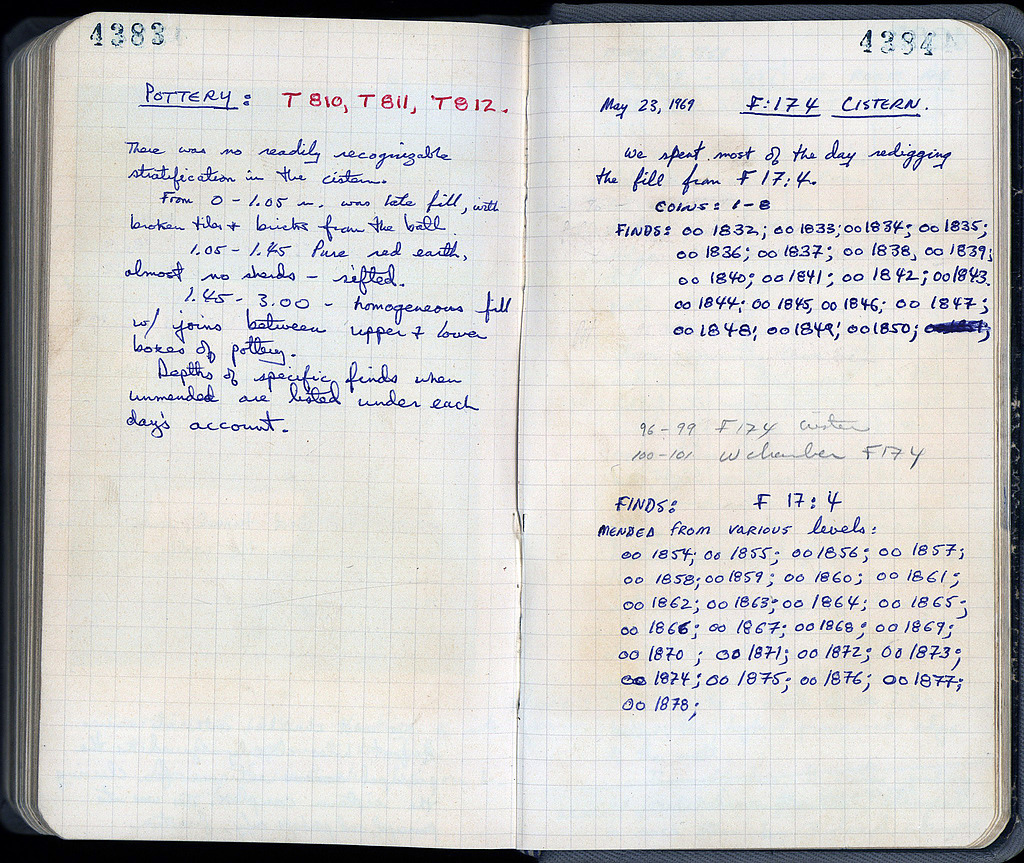 4383
POTTERY: T 810, T 811, T 812.
There was no readily recognizable
stratification in the cistern.
From 0 - 1.05 m. was late fill, with
broken tiles + bricks from the ball
1.05 - 1.45 Pure red earth,
almost no sherds - sifted.
1.45 - 3.00 - homogeneous fill
w/ joins between upper + lower
boxes of pottery.
Depths of specific finds when
unmended are listed under each
day's account.
4384
May 23, 1969 F:17 4 CISTERN.
We spent most of the day redigging
the fill from F 17:4.
COINS: 1-8
FINDS: oo 1832; oo 1833; oo 1834; oo 1835;
oo 1836; oo 1837; oo 1838, oo 1839;
oo 1840; oo 1841; oo 1842; oo 1843.
oo 1844; oo 1845, oo 1846; oo 1847;
oo 1848; oo 1849; oo 1850;
96-99 F 17 4 cistern
100-101 W chamber F 17 4
FINDS: F 17:4
MENDED FROM VARIOUS levels:
oo 1854; oo 1855; oo 1856; oo 1857;
oo 1858; oo 1859; oo 1860; oo 1861;
oo 1862; oo 1863; oo 1864; oo 1865;
oo 1866; oo 1867; oo 1868; oo 1869;
oo 1870; oo 1871; oo 1872; oo 1873;
oo 1874; oo 1875; oo 1876; oo 1877;
oo 1878;